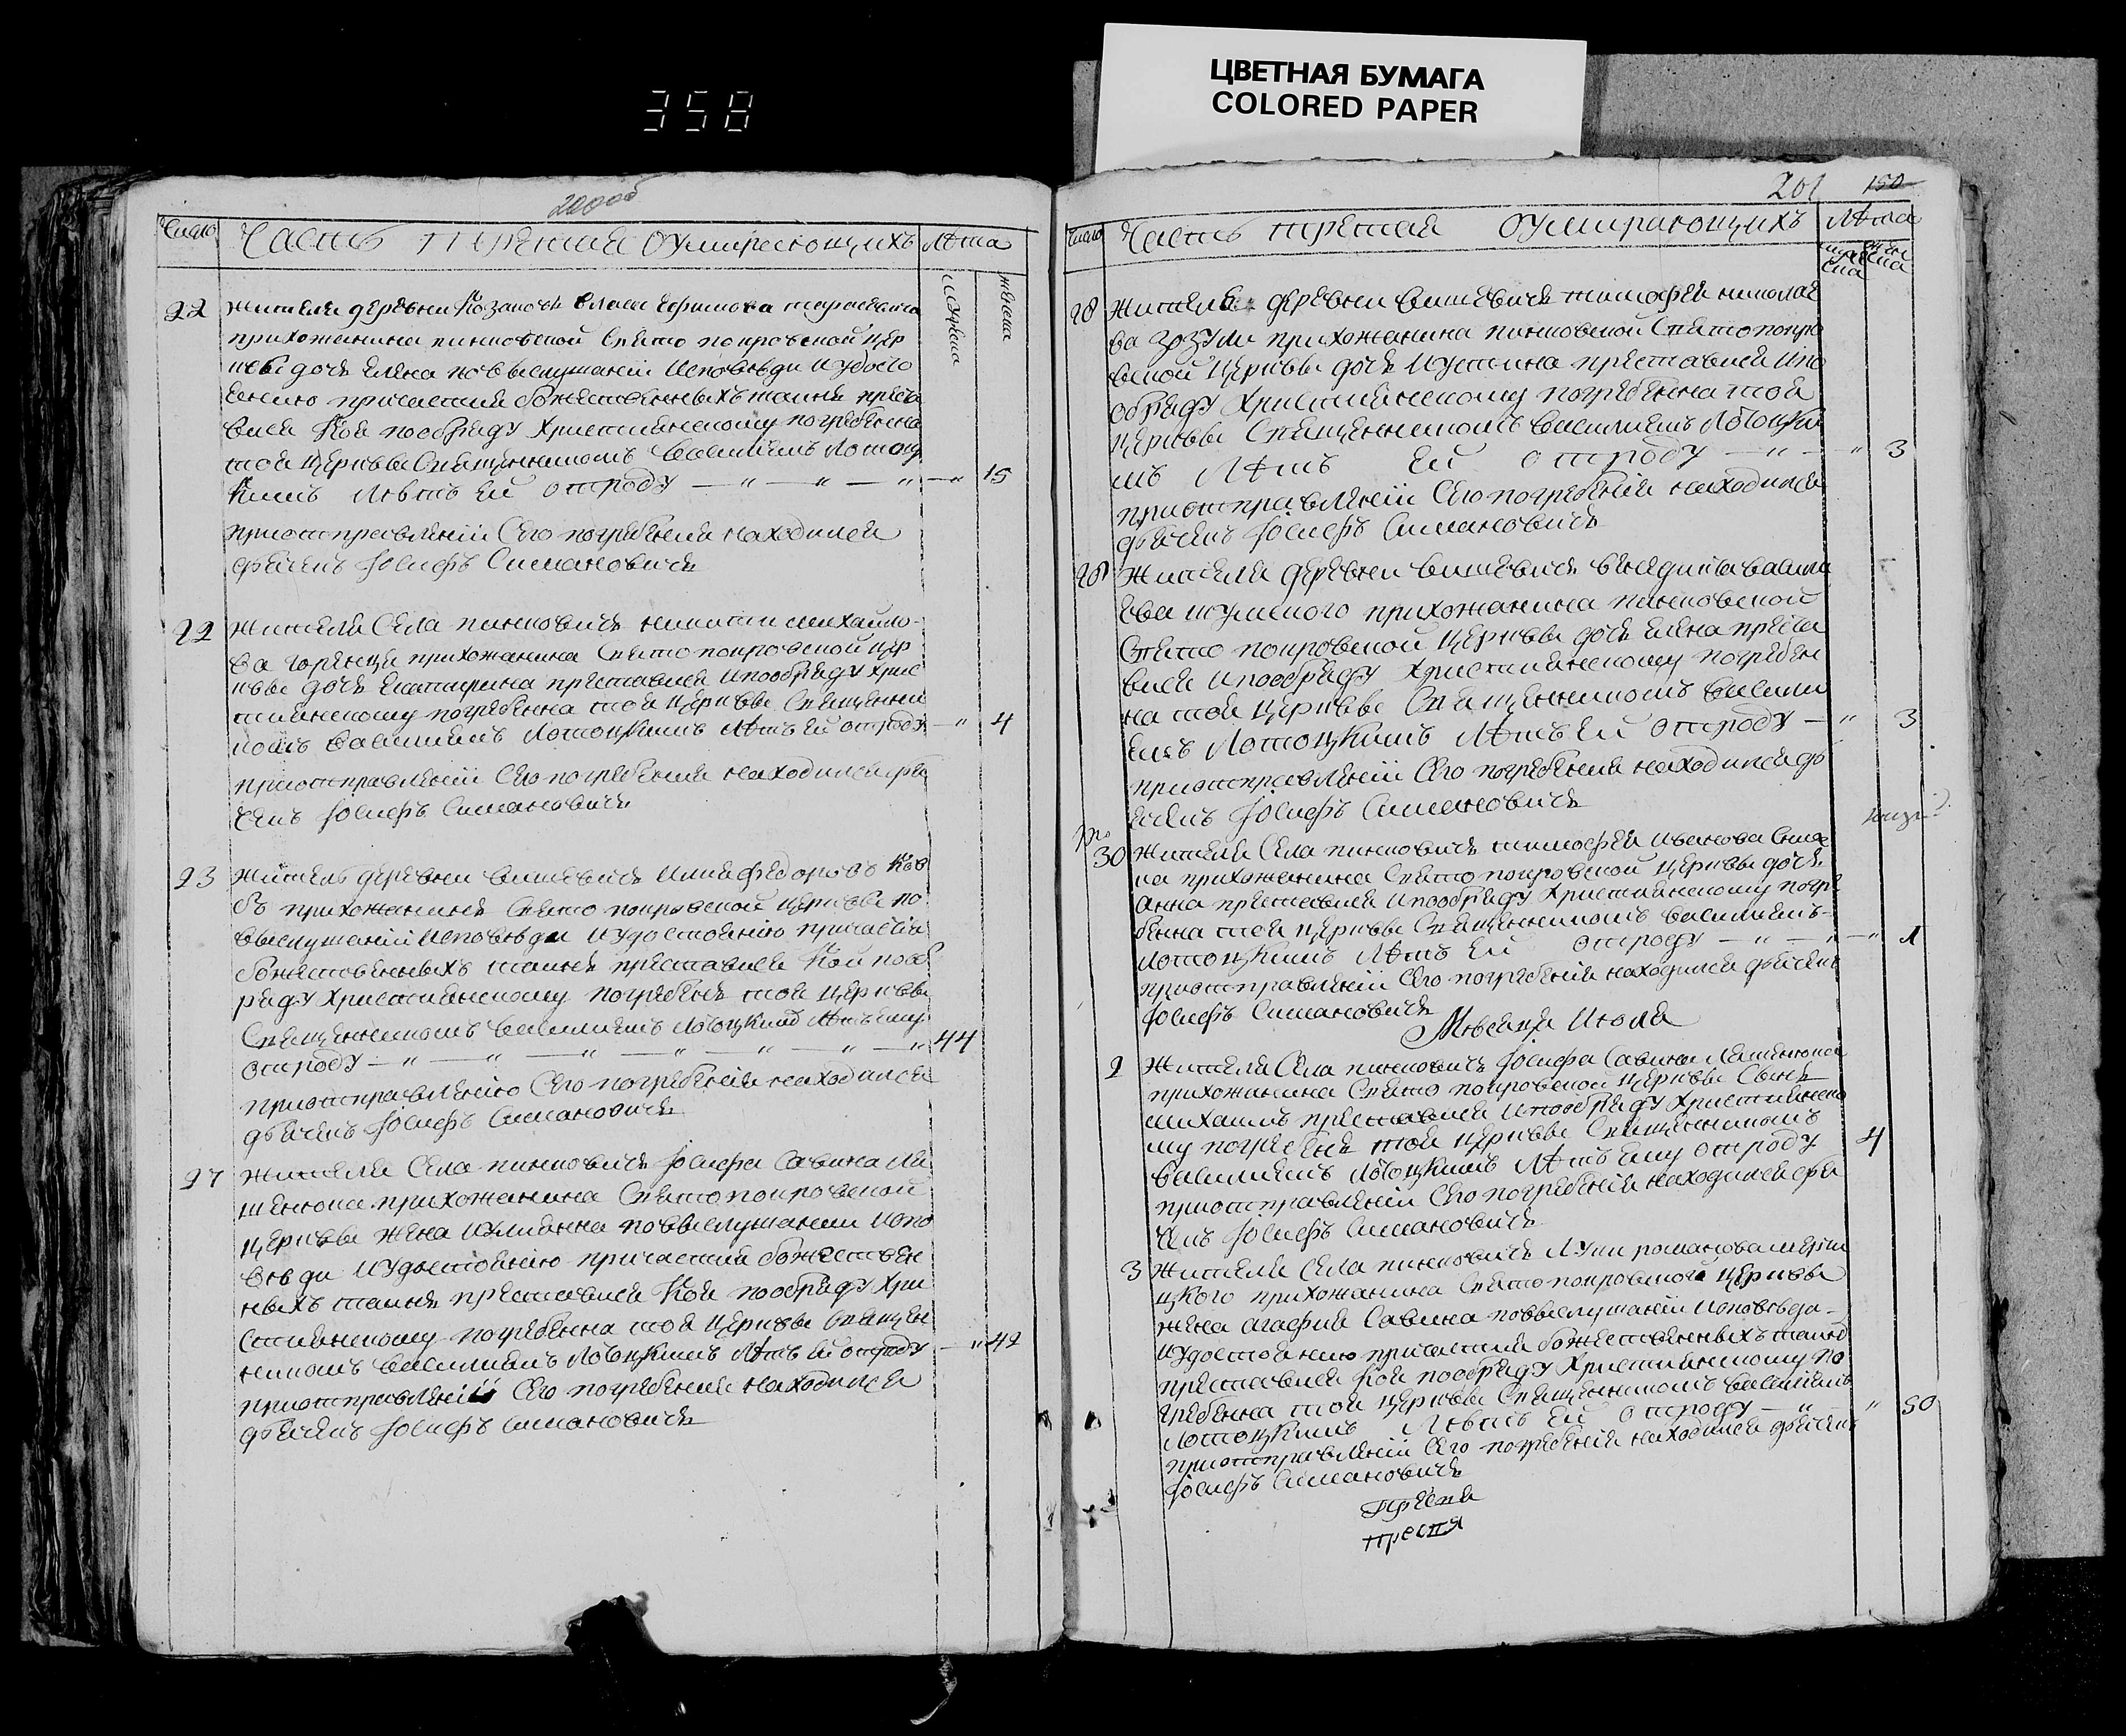 ЦВЕТНАЯ БУМАГА
COLORED PAPER
358
200об
Число Часть третая оумирающихъ Лѣта
мужеска женска
22 жителя деревни Козановъ
прихожанина пинковской Свято покровской цер
кве дочь елена по выслушанiи исповѣди и удосто
енiю причастия божественныхъ таинъ преста
вися Коя по обряду Християнскому погребенна
тоя церкве Священникомъ василиемъ Лотоц
Кимъ Лѣтъ ей отроду — 15
при отправленiи Сего погребения находился
дьячекъ Iосифъ Симановичъ
22 жителя Села пинковичъ никити михайло-
ва прихожанина Свято покровской цер
кве дочь екатирина преставися и по обряду Хрис
тиянскому погребенна тоя церкве Священни
комъ василиемъ Лотоцкимъ Лѣтъ ей отроду — 4
при отправленiи Сего погребения находился дья
чекъ Iосифъ Симановичъ
23 житель деревни вишевичъ илия федоровъ
прихожанинъ Свято покровской церкве по
выслушанiи исповѣди и удостоенiю причастiя
божественныхъ таинъ преставися Кой по об
ряду Християнскому погребенъ тоя церкве
Священникомъ василиемъ Лотоцкимъ Лѣтъ ему
отроду — 44
при отправленiю Сего погребенiя находился
дьячекъ Iосифъ Симановичъ
27 жителя Села пинковичъ Iосифа Савина ля
шенюка прихожанина Свято покровской
церкве жена иулианна по выслушании испо
вѣди и удостоенiю причастия божествен
ныхъ таинъ преставися Коя по обряду Хри
стиянскому погребенна тоя церкве Священ
никомъ василиемъ Лотоцкимъ Лѣтъ ей отроду — 42
при отправленiи Сего погребения находился
дьячекъ Iосифъ Симановичъ
201 150
Число Часть третая оумирающихъ Лѣта
мужеска женска
28 жителя деревни вишевичъ тимофея николае
ва зозули прихожанина пинковской Свято покро
вской церкве дочь иустина преставися и по
обряду Християнскому погребенна тоя
церкве Священникомъ василиемъ Лотоцки
мъ Лѣтъ ей отроду — 3
при отправленiи Сего погребения находился
дьячекъ Iосифъ Симановичъ
28 жителя деревни вишевичъ венедикта васили
ева прихожанина пинковской
Свято покровской церкве дочь елена преста
вися и по обряду Християнскому погребен
на тоя церкве Священникомъ васили
емъ Лотоцкимъ Лѣтъ ей отроду — 3
при отправленiи Сего погребения находился дь
ячекъ Iосифъ Симановичъ
30 жителя Села пинковичъ тимофея иванова
прихожанина Свято покровской церкве дочь
анна преставися и по обряду Християнскому погре
бенна тоя церкве Священникомъ василиемъ
Лотоцкимъ Лѣтъ ей отроду — 1
при отправленiи Сего погребенiя находился дьячекъ
Iосифъ Симановичъ
Мѣсяца Июля
2 жителя Села пинковичъ Iосифа Савина Ляшенюка
прихожанина Свято покровской церкве Сынъ
михаилъ преставися и по обряду Християнско
му погребенъ тоя церкве Священникомъ
василиемъ Лотоцкимъ Лѣтъ ему отроду 4
при отправленiи Сего погребенiя находился дья
чекъ Iосифъ Симановичъ
3 жителя Села пинковичъ луки романова
цкого прихожанина Свято покровской церкве
жена агафия Савина по выслушанiи исповѣди-
и удостоению причастия божественныхъ таинъ
преставися Коя по обряду Християнскому по
гребенна тоя церкве Священникомъ василиемъ
Лотоцкимъ Лѣтъ ей отроду — 50
при отправленiи Сего погребенiя находился дьячекъ
Iосифъ Симановичъ